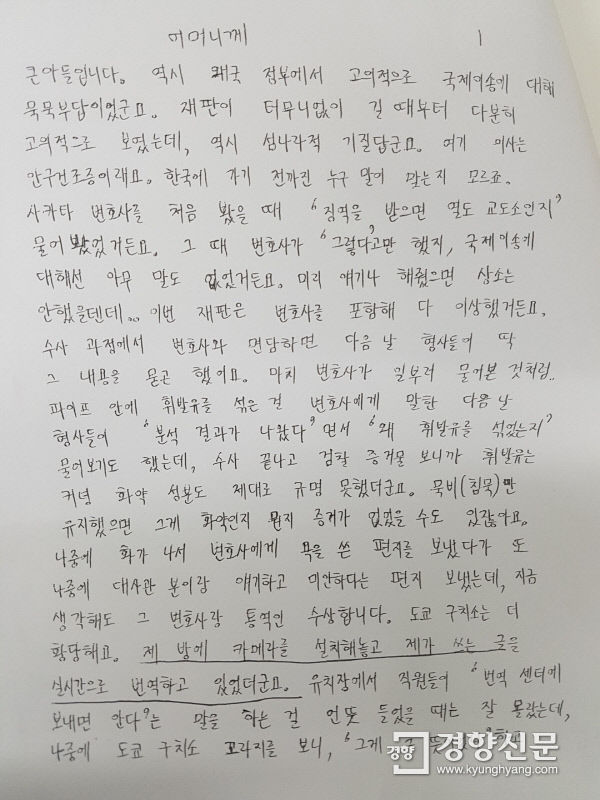 어머니께 1
큰아들입니다. 역시 왜국 정부에서 고의적으로 국제이송에 대해
묵묵부답이었군요. 재판이 터무니없이 길 때부터 다분히
고의적으로 보였는데, 역시 섬나라적 기질답군요. 여기 의사는
안구건조증이래요. 한국에 가기 전까진 누구 말이 맞는지 모르죠.
사카타 변호사를 처음 봤을 때 '징역을 받으면 열도 교도소인지'
물어봤었거든요. 그 때 변호사가 '그렇다'고만 했지, 국제이송에
대해선 아무 말도 없었거든요. 미리 얘기나 해줬으면 상소는
안했을텐데... 이번 재판은 변호사를 포함해 다 이상했거든요.
수사 과정에서 변호사와 면담하면 다음 날 형사들이 딱
그 내용을 묻곤 했어요. 마치 변호사가 일부러 물어본 것처럼..
파이프 안에 휘발유를 섞은 걸 변호사에게 말한 다음 날
형사들이 '분석 결과가 나왔다'면서 '왜 휘발유를 섞었는지'
물어보기도 했는데, 수사 끝나고 검찰 증거물 보니까 휘발유는
커녕 화약 성분도 제대로 규명 못했더군요. 묵비(침묵)만
유지했으면 그게 화약인지 뭔지 증거가 없었을 수도 있잖아요.
나중에 화가 나서 변호사에게 욕을 쓴 편지를 보냈다가 또
나중에 대사관 분이랑 얘기하고 미안하다는 편지 보냈는데, 지금
생각해도 그 변호사랑 통역인 수상합니다. 도쿄 구치소는 더
황당해요. 제 방에 카메라를 설치해놓고 제가 쓰는 글을
실시간으로 번역하고 있었더군요. 유치장에서 직원들이 '번역 센터에
보내면 안다'는 말을 하는 걸 언뜻 들었을 때는 잘 몰랐는데,
나중에 도쿄 구치소 꼬라지를 보니, '그게
경향 경향신문
www.kyunghyang.com